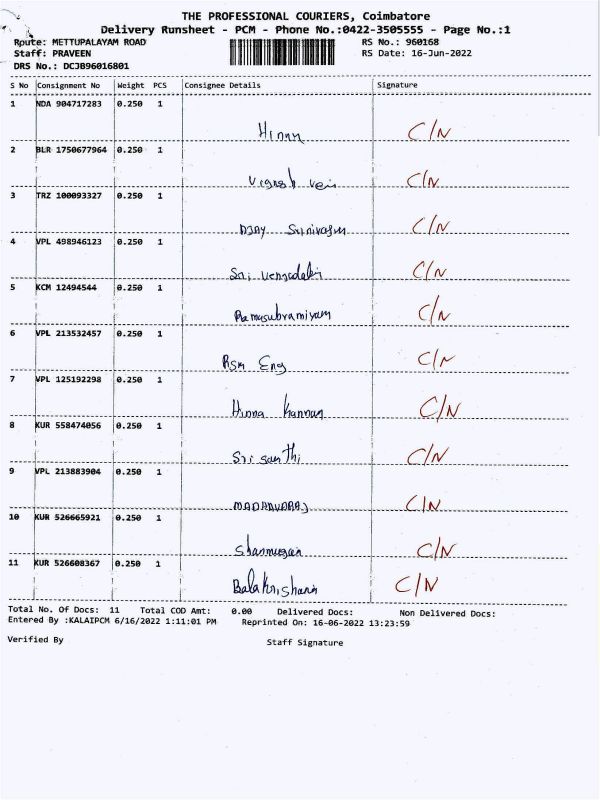 THE PROFESSIONAL COURIERS, Coimbatore
Delivery Runsheet - PCM - Phone No.:0422-3505555 - Page No.:1
Route: METTUPALAYAM ROAD RS No.: 960168
Staff: PRAVEEN RS Date: 16-Jun-2022
DRS No.: DCJB96016801
S No Consignment No Weight PCS Consignee Details Signature
1 NDA 904717283 0.250 1
C/N
2 BLR 1750677964 0.250 1
C/N
3 TRZ 100093327 0.250 1
Srinivasan C/N
4 VPL 498946123 0.250 1
Sri C/N
5 KCM 12494544 0.250 1
Ramasubramiyam C/N
6 VPL 213532457 0.250 1
RSM Eng C/N
7 VPL 125192298 0.250 1
Hinna Kannan C/N
8 KUR 558474056 0.250 1
Sri santhi C/N
9 VPL 213883904 0.250 1
C/N
10 KUR 526665921 0.250 1
C/N
11 KUR 526608367 0.250 1
C/N
Total No. Of Docs: 11 Total COD Amt: 0.00 Delivered Docs: Non Delivered Docs:
Entered By :KALAIPCM 6/16/2022 1:11:01 PM Reprinted On: 16-06-2022 13:23:59
Verified By Staff Signature